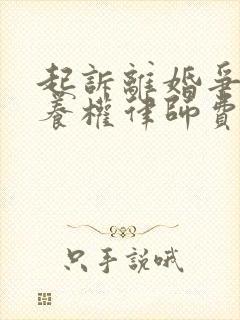 起訴離婚爭
養權律師費
只手說哦